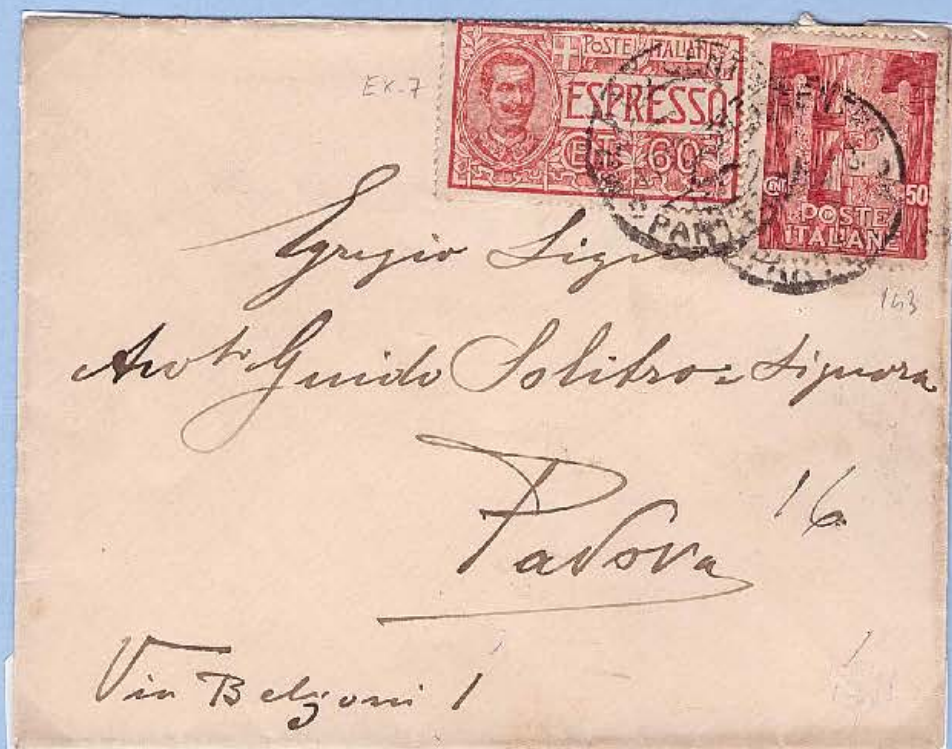 EX-7
POSTE ITALIANE
ESPRESSO
CENT 60
CENT 50
POSTE
ITALIANE
143
Egregio Sign
Avv.to Guido Solitro e Signora
Padova
16
Via Belzoni 1